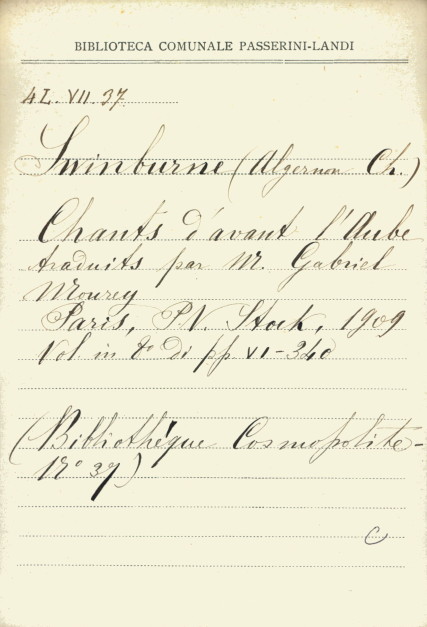 BIBLIOTECA COMUNALE PASSERINI-LANDI
4L. VII. 37
Swinburne (Algernon Ch.)
Chants d'avant l'Aube
traduits par M. Gabriel
Mourey
Paris, P.V. Stock, 1909
Vol in 8° di pp VI-340
(Bibliothéque Cosmopolite-
N° 37)
C